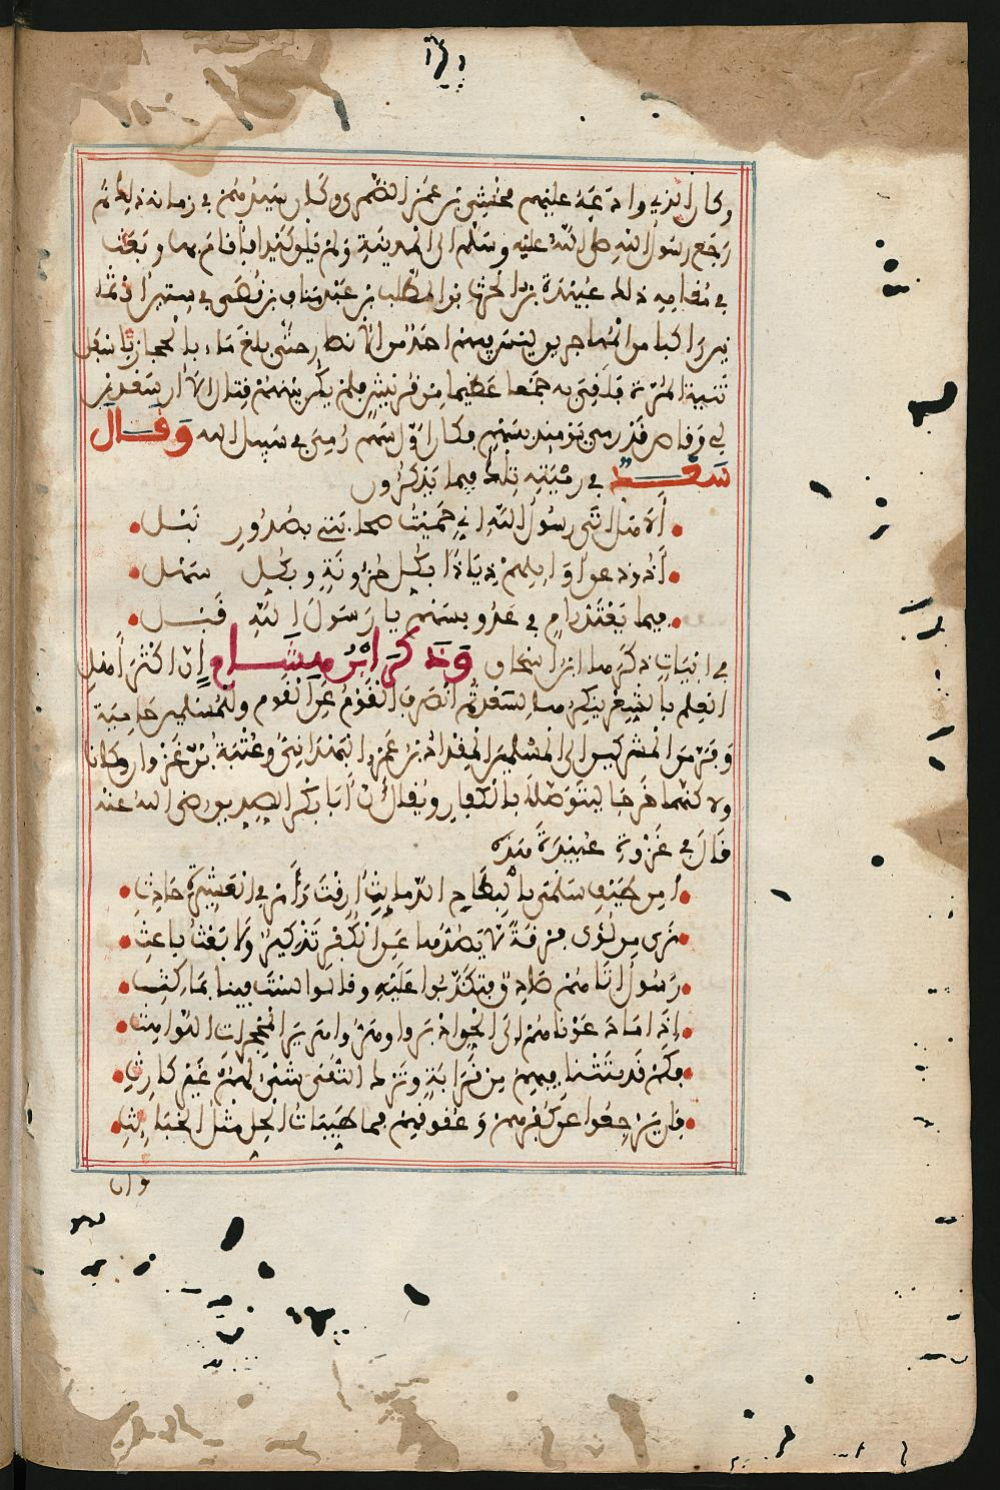 وكان الذي وادعه عليهم مخشي بن عمرو الضمري وكان سيدهم في زمانه ذلك ثم
رجع رسول الله صلى الله عليه وسلم الى المدينة ولم يلق كيدا فأقام بها وبعث
في مقامه ذلك عبيدة بن الحرث بن المطلب بن عبد مناف بن قصي في ستين او ثما
نين راكبا من المهاجرين ليس فيهم احد من الانصار حتى بلغ ماء بالحجاز بأسفل
ثنية المرة فلقي به جمعا عظيما من قريش فلم يكن بينهم قتال الا ان سعد بن
ابي وقاص قد رمى يومئذ بسهم فكان اول سهم رمي في سبيل الله وقال
سعد في رميته تلك فيما يذكرون
ألا هل أتى رسول الله اني حميت صحابتي بصدور نبل
أذود عدوا وايلهم ذيادا بكل حزونة وبكل سهل
فيما يعتد رام في عدو بسهم يا رسول الله قبل
في ابيات ذكرها ابن اسحاق وذكر ابن هشام إن اكثر أهل
العلم بالشعر ينكرها لسعد ثم انصرف القوم عن القوم وللمسلمين حامية
وفر من المشركين الى المسلمين المقداد بن عمرو البهراني وعتبة بن غزوان وكانا
ولاكنهما خرجا ليتوصلا بالكفار ويقال ان أبا بكر الصديق رضي الله عنه
قال في غزوة عبيدة هذه
أمن طيف سلمى بالبطاح الدمايث أرقت وأمر في العشيرة حادث
ترى من لؤي فرقة لا يصدها عن الكفر تذكير ولا بعث باعث
رسول اتاهم صادق فتكذبوا عليه وقالوا لست فينا بماكث
إذا ما دعوناهم إلى الحق ادبروا وهروا هرير المجحرات اللواهث
فكم قد متتنا فيهم من قرابة وترك التقى شيء لهم غير كارث
فإن يرجعوا عن كفرهم وعقوقهم فما طيبات الحل مثل الخبائث
وان